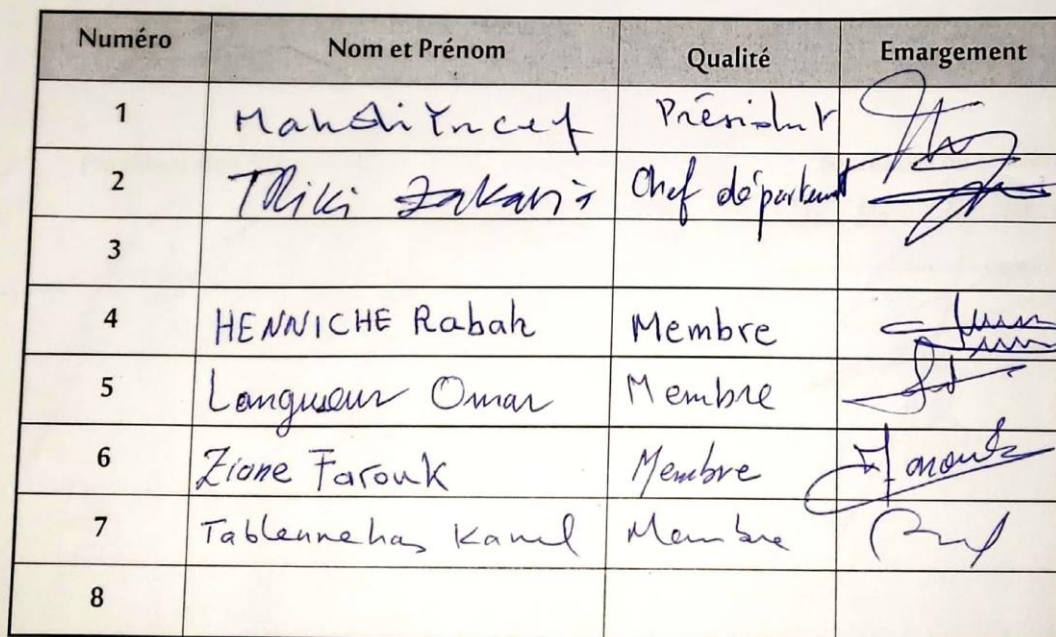 Numéro Nom et Prénom Qualité Emargement
1 Mahdi Yucef Président
2 Tliki Zakaria Chef département
3
4 HENNICHE Rabah Membre
5 Langueur Omar Membre
6 Ziane Farouk Membre Farouk
7 Tablennehas Kamel Membre
8